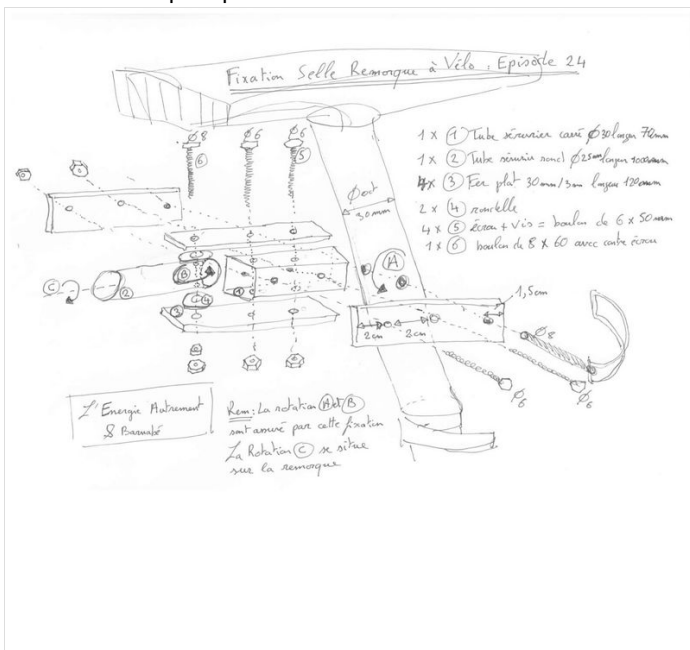 Fixation Selle Remorque à Vélo : Episode 24
1 x ① Tube serrurier carré Ø 30 longueur 70mm
1 x ② Tube serrurier rond Ø 25mm longueur 1000mm
4 x ③ Fer plat 30 mm/3mm longueur 120mm
2 x ④ rondelle
4 x ⑤ écrou + Vis = boulon de 6 x 50 mm
1 x ⑥ boulon de 8 x 60 avec contre écrou
Ø8
Ø6
Ø6
⑥
⑤
Øext
30 mm
A
B
C
②
①
④
③
1,5cm
2cm
2cm
Ø8
Ø6
Ø6
L'Energie Autrement
& Barnabé
Rem : La rotation Ⓐ et Ⓑ
sont assuré par cette fixation
La Rotation Ⓒ se situe
sur la remorque